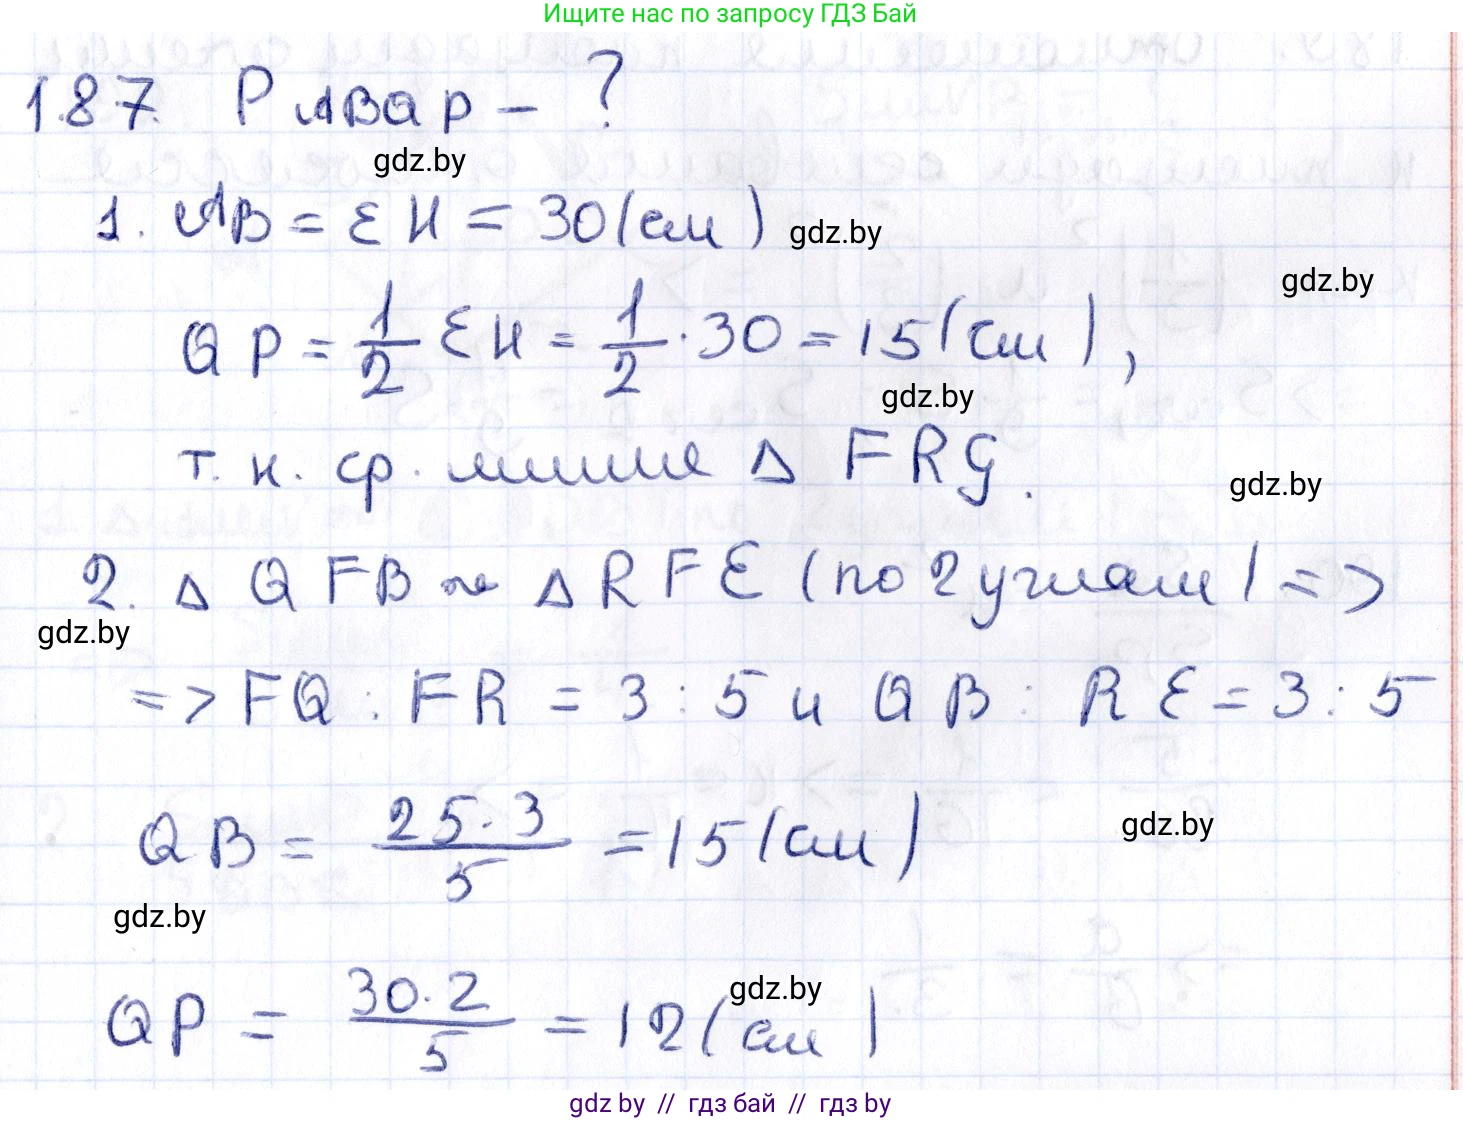 Ищите нас по запросу ГДЗ Бай
187. P ABQP - ?
gdz.by
1. AB = EH = 30 (см)
gdz.by
gdz.by
QP = 1/2 EH = 1/2 · 30 = 15 (см),
gdz.by
т. к. ср. линия Δ FRG.
gdz.by
2. Δ QFB ~ Δ RFE (по 2 углам) =>
gdz.by
=> FQ : FR = 3 : 5 и QB : RE = 3 : 5
QB = 25·3/5 = 15 (см)
gdz.by
gdz.by
QP = 30·2/5 = 12 (см)
gdz.by
gdz by // гдз бай // гдз by